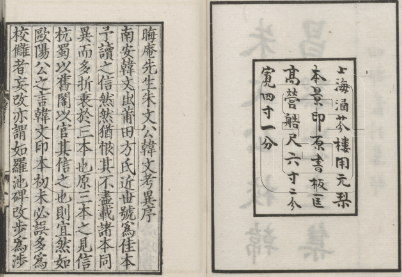 上海涵芬樓用元栞
本景印原書板匡
高營艁尺六寸二分
寬四寸一分
晦庵先生朱文公韓文考異序
南安韓文出莆田方氏近世號爲佳本
予讀之信然然猶恨其不盡載諸本同
異而多折衷於三本也原三本之見信
杭蜀以舊閣以官其信之也則宜然如
歐陽公之言韓文印本初未必誤多爲
校讎者妄改亦謂如羅池碑改步爲涉